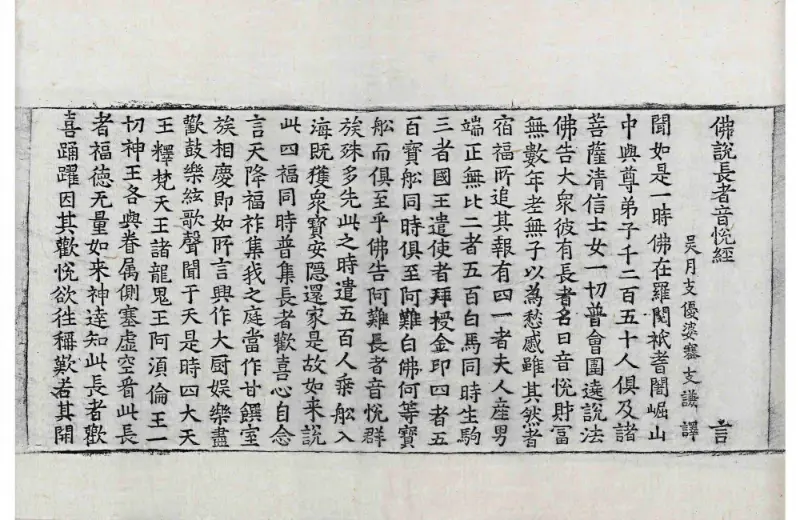 佛說長者音悅經 言
吳月支優婆塞支謙譯
聞如是一時佛在羅閱祇耆闍崛山
中與尊弟子千二百五十人俱及諸
菩薩清信士女一切普會圍遶說法
佛告大衆彼有長者名曰音悅財冨
無數年老無子以為愁慼雖其然者
宿福所追其報有四一者夫人産男
端正無比二者五百白馬同時生駒
三者國王遣使者拜授金印四者五
百寶舩同時俱至阿難白佛何等寶
舩而俱至乎佛告阿難長者音悅群
族殊多先此之時遣五百人乘舩入
海既獲衆寶安隱還家是故如来說
此四福同時普集長者歡喜心自念
言天降福祚集我之庭當作甘饌室
族相慶即如所言興作大厨娯樂盡
歡鼓樂絃歌聲聞于天是時四大天
王釋梵天王諸龍鬼王阿須倫王一
切神王各與眷属側塞虛空看此長
者福德无量如来神達知此長者歡
喜踊躍因其歡悅欲往稱歎若其開